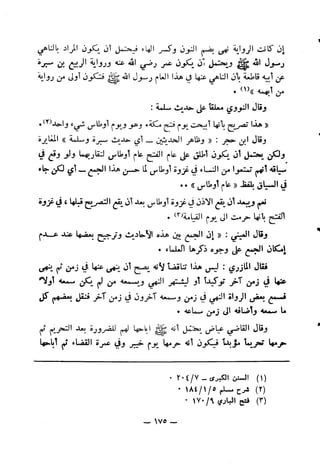 إن كانت الرواية نهى بضم النون وكسر الهاء فيحتمل أن يكون المراد بالناهي
رسول الله ﷺ ويحتمل أن يكون عمر رضي الله عنه ورواية الربيع بن سبرة
عن أبيه قاطعة بأن الناهي عنها في هذا العام رسول الله ﷺ فتكون أولى من رواية
من أبهمه » (١) ٠
وقال النووي معلقا على حديث سلمة :
« هذا تصريح بأنها أبيحت يوم فتح مكة، وهو ويوم أوطاس شيء واحد»(٢)٠
وقال ابن حجر : « وظاهر الحديثين – أي حديث سبرة وسلمة » المغايرة
ولكن يحتمل أن يكون أطلق على عام الفتح عام أوطاس لتقاربهما ولو وقع في
سياقه أنهم تمتعوا من النساء في غزوة أوطاس لما حسن هذا الجمع – أي لكن جاء
في السياق بلفظ « عام أوطاس » ٠٠
نعم ويبعد أن يقع الاذن في غزوة أوطاس بعد أن يقع التصريح قبلها ، في غزوة
الفتح بأنها حرمت الى يوم القيامة(٣)٠
وقال العيني : « إن الجمع بين هذه الأحاديث وترجيح بعضها عند عدم
إمكان الجمع على وجوه ذكرها العلماء ٠
فقال المازري : ليس هذا تناقضا لأنه يصح أن ينهى عنها في زمن ثم ينهى
عنها في زمن آخر توكيدا أو ليشتهر النهي ويسمعه من لم يكن سمعه أولا
فسمع بعض الرواة النهي في زمن وسمعه آخرون في زمن آخر فنقل بعضهم كل
ما سمعه وأضافه الى زمن سماعه ٠
وقال القاضي عياض يحتمل أنه ﷺ اباحها لهم للضرورة بعد التحريم ثم
حرمها تحريما مؤبدا فيكون أنه حرمها يوم خيبر وفي عمرة القضاء ثم أباحها
(١) السنن الكبرى – ٢٠٤/٧ ٠
(٢) شرح مسلم ١٨٤/١/٥ ٠
(٣) فتح الباري ١٧٠/٩ ٠
– ١٧٥ –